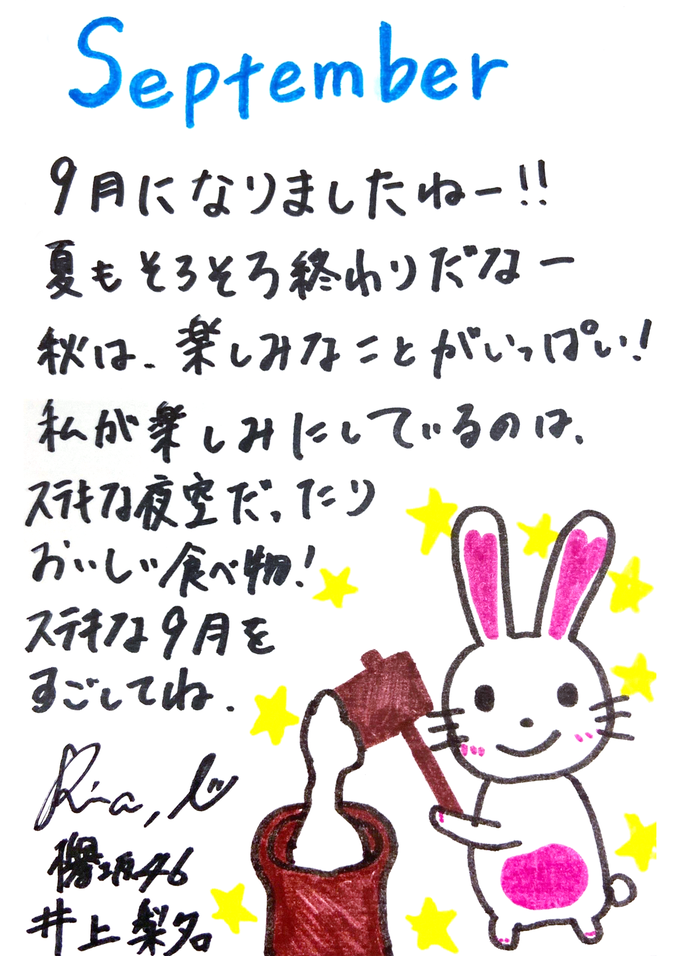 September
9月になりましたねー!!
夏もそろそろ終わりだなー
秋は、楽しみなことがいっぱい!
私が楽しみにしているのは、
ステキな夜空だったり
おいしい食べ物!
ステキな9月を
すごしてね.
Ria,
欅坂46
井上梨名